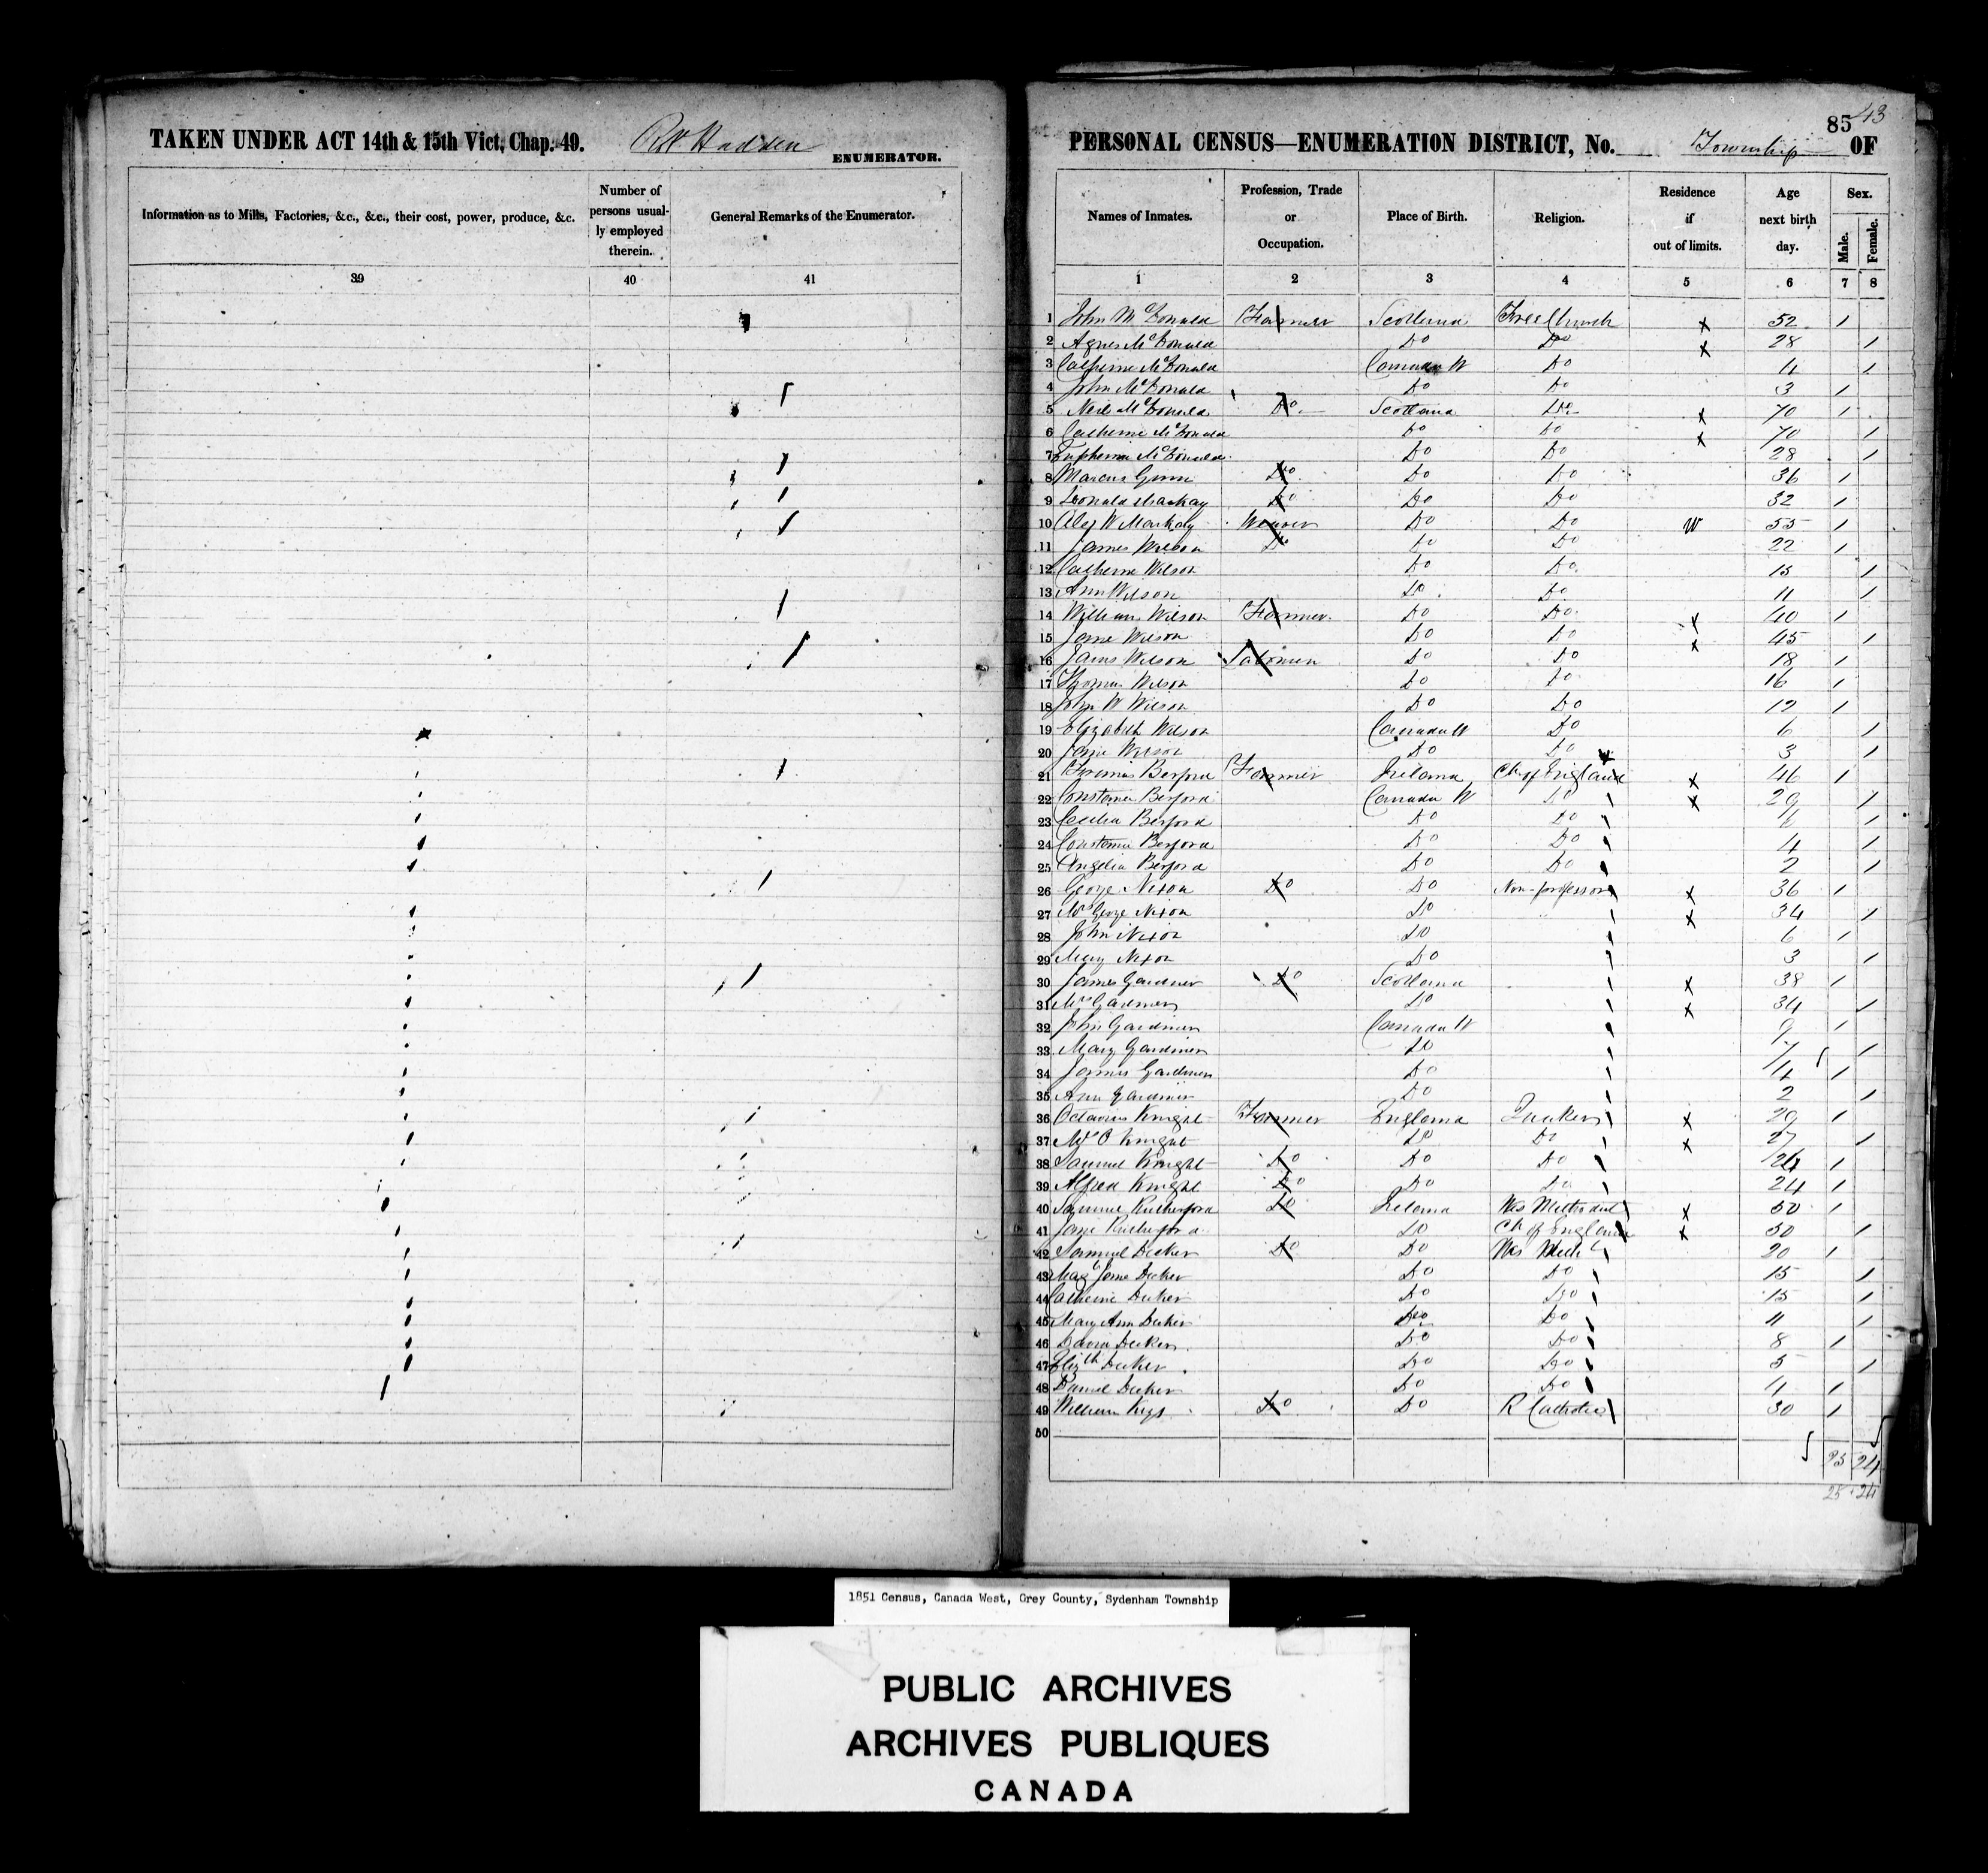 TAKEN UNDER ACT 14th & 15th Vict, Chap. 49. ENUMERATOR.
Information as to Mills, Factories, &c., &c., their cost, power, produce, &c.
Number of persons usually employed therein.
General Remarks of the Enumerator.
39 40 41
43
85
PERSONAL CENSUS—ENUMERATION DISTRICT, No. Township OF
Names of Inmates.
Profession, Trade or Occupation.
Place of Birth.
Religion.
Residence if out of limits.
Age next birth day.
Sex.
Male. Female.
1 2 3 4 5 6 7 8
1 John McDonald Farmer Scotland Free Church x 52 1
2 Agnes McDonald Do Do x 28 1
3 Catherine McDonald Canada W Do 4 1
4 John McDonald Do Do 3 1
5 Neil McDonald Do Scotland Do x 70 1
6 Catherine McDonald Do Do x 70 1
7 Euphemia McDonald Do Do 28 1
8 Marcus Gunn Do Do Do 36 1
9 Donald Mackay Do Do Do 32 1
10 Alex W Mackay Weaver Do Do W 55 1
11 James Wilson Do Do Do 22 1
12 Catherine Wilson Do Do 15 1
13 Ann Wilson Do Do 11 1
14 William Wilson Farmer Do Do x 40 1
15 Jane Wilson Do Do x 45 1
16 James Wilson Do Do 18 1
17 Thomas Wilson Do Do 16 1
18 John W Wilson Do Do 12 1
19 Elizabeth Wilson Canada W Do 6 1
20 Jane Wilson Do Do 3 1
21 Francis Berford Farmer Ireland Ch of England x 46 1
22 Berford Canada W Do x 29 1
23 Cecilia Berford Do Do 6 1
24 Berford Do Do 4 1
25 Berford Do Do 2 1
26 George Nixon Do Do Non-professor x 36 1
27 Mrs George Nixon Do x 34 1
28 John Nixon Do 6 1
29 Mary Nixon Do 3 1
30 James Gardiner Do Scotland x 38 1
31 Mrs Gardiner Do x 34 1
32 John Gardiner Canada W 9 1
33 Mary Gardiner Do 7 1
34 James Gardiner Do 4 1
35 Ann Gardiner Do 2 1
36 Octavius Knight Farmer England Quaker x 29 1
37 Mrs O Knight Do Do x 27 1
38 Samuel Knight Do Do Do 1
39 Alfred Knight Do Do Do 24 1
40 Samuel Rutherford Do Ireland Wes Methodist x 50 1
41 Jane Rutherford Do Ch of England x 50 1
42 Samuel Decker Do Do Wes Meth 20 1
43 Jane Decker Do Do 15 1
44 Catherine Decker Do Do 15 1
45 Mary Ann Decker Do Do 11 1
46 David Decker Do Do 8 1
47 Elizth Decker Do Do 5 1
48 Daniel Decker Do Do 1
49 William Keys Do Do R Catholic 30 1
50
25 24
25 24
1851 Census, Canada West, Grey County, Sydenham Township
PUBLIC ARCHIVES
ARCHIVES PUBLIQUES
CANADA